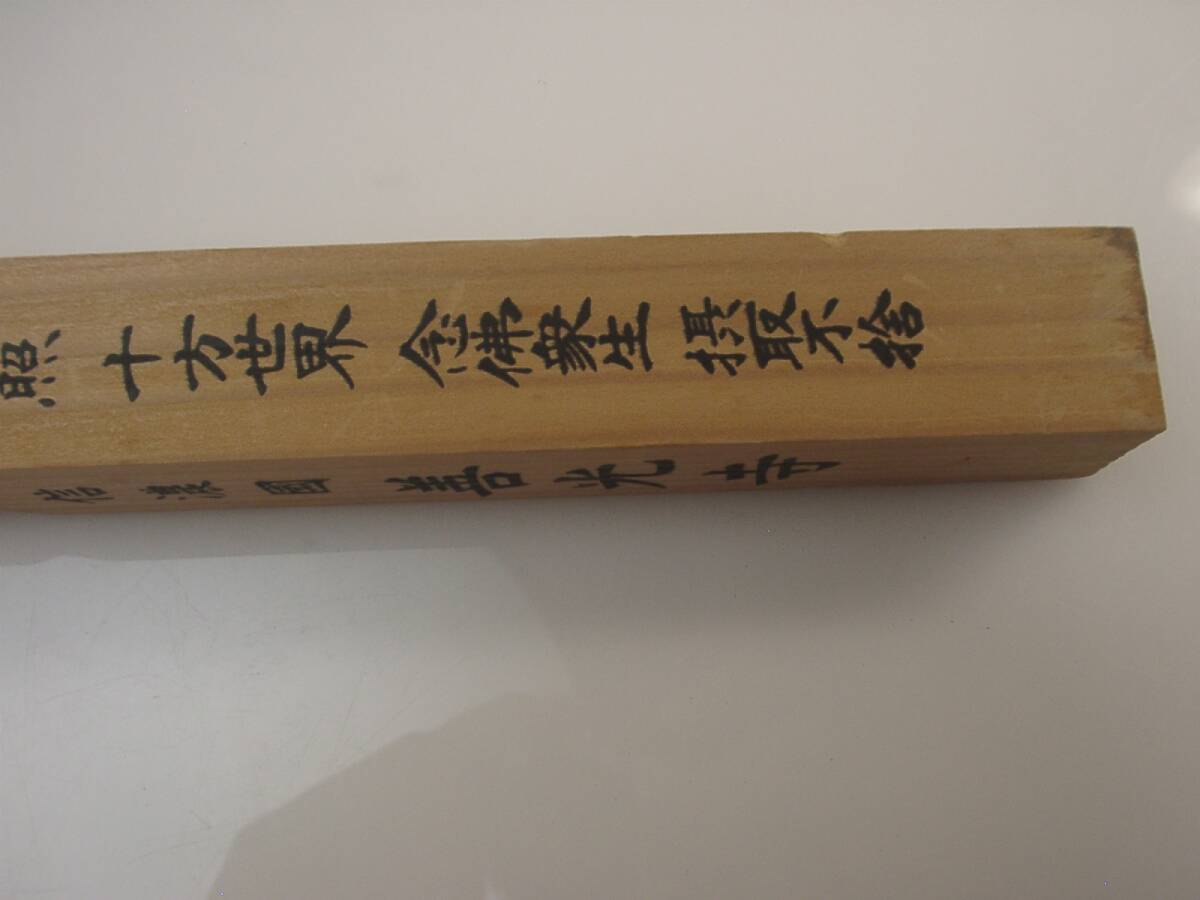 照 十方世界 念佛衆生 摂取不捨
信濃國 善光寺